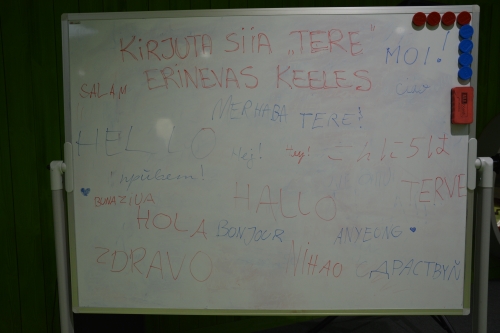 KIRJUTA SIIA „TERE"
ERINEVAS KEELES
MOI!
SALAM
MERHABA
TERE!
HELLO
Hej!
こんにちは
HALLO
TERVE
BUNA ZIUA
HOLA
BONJOUR
ANYEONG
ZDRAVO
NIHAO